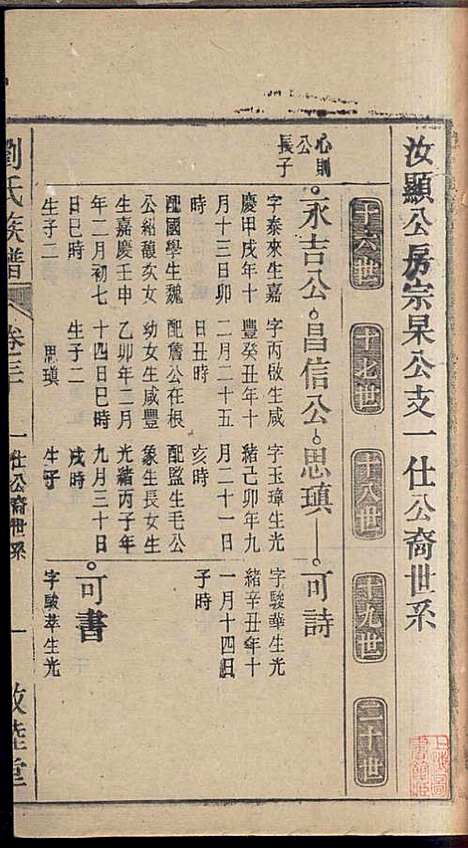 汝顯公房宗杲公支一仕公裔世系
十六世
十七世
十八世
十九世
二十世
心則公長子
永吉公
昌信公
思瑱
可詩
字泰來生嘉
慶甲戌年十
月十三日卯
時
配國學生魏
公紹馥亥女
生嘉慶壬申
年二月初七
日巳時
生子二
字丙啟生咸
豐癸丑年十
二月二十五
日丑時
配詹公在根
幼女生咸豐
乙卯年二月
十四日巳時
生子二
思瑱
字玉璋生光
緒己卯年九
月二十一日
亥時
配監生毛公
象生長女生
光緒丙子年
九月三十日
戌時
生子
字駿華生光
緒辛丑年十
一月十四日
子時
可書
字駿萃生光
劉氏族譜
卷三
一仕公裔世系
一
敦睦堂